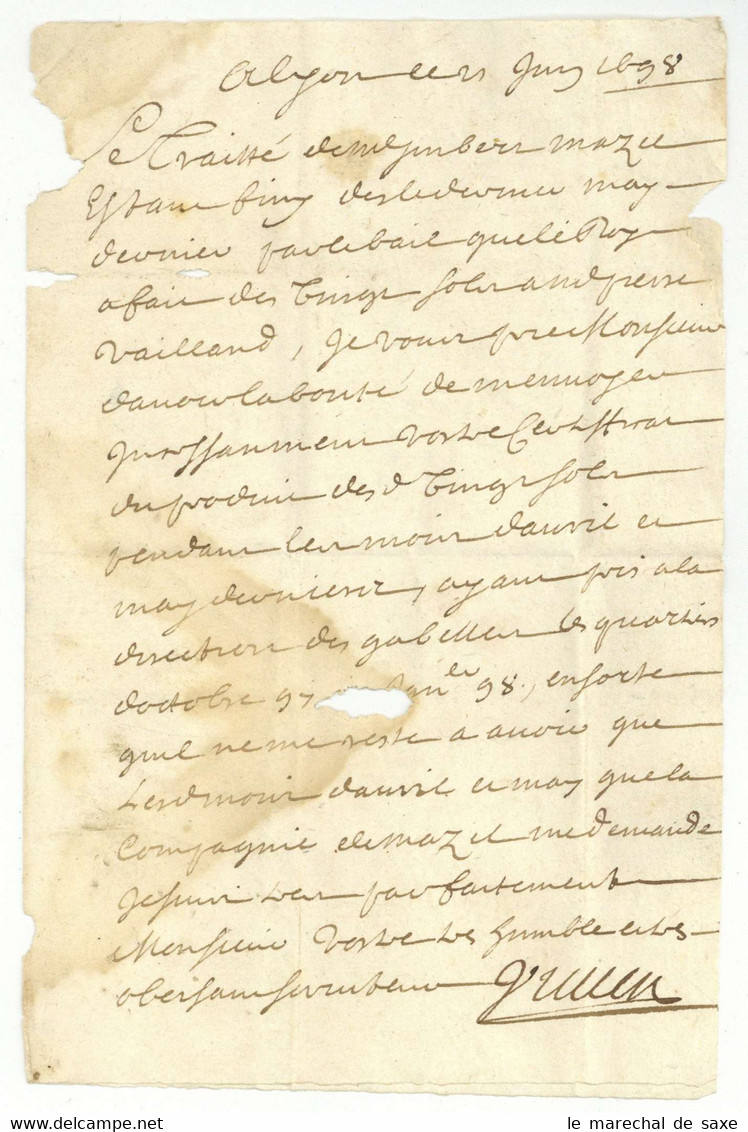 A Lyon ce 21 Juin 1698
Le Traitté de Mr Jmbert mazet
Estant finy des le dernier may
dernier par le bail que le Roy
a fait des vingt sols a Mr pierre
Vailland, Je vous prie Monsieur
davoir la bonté de menvoyer
Jncessamment vostre Certifficat
du produit desd vingt sols
pendant les mois davril et
may derniers, ayant pris a la
direction des gabelles les quartiers
doctobre 97 98, en sorte
quil ne me reste a avoir que
lesd mois davril et may que la
Compagnie de mazet me demande
Je suis tres parfaitement
Monsieur vostre tres humble et tres
obeissant serviteur
le marechal de saxe